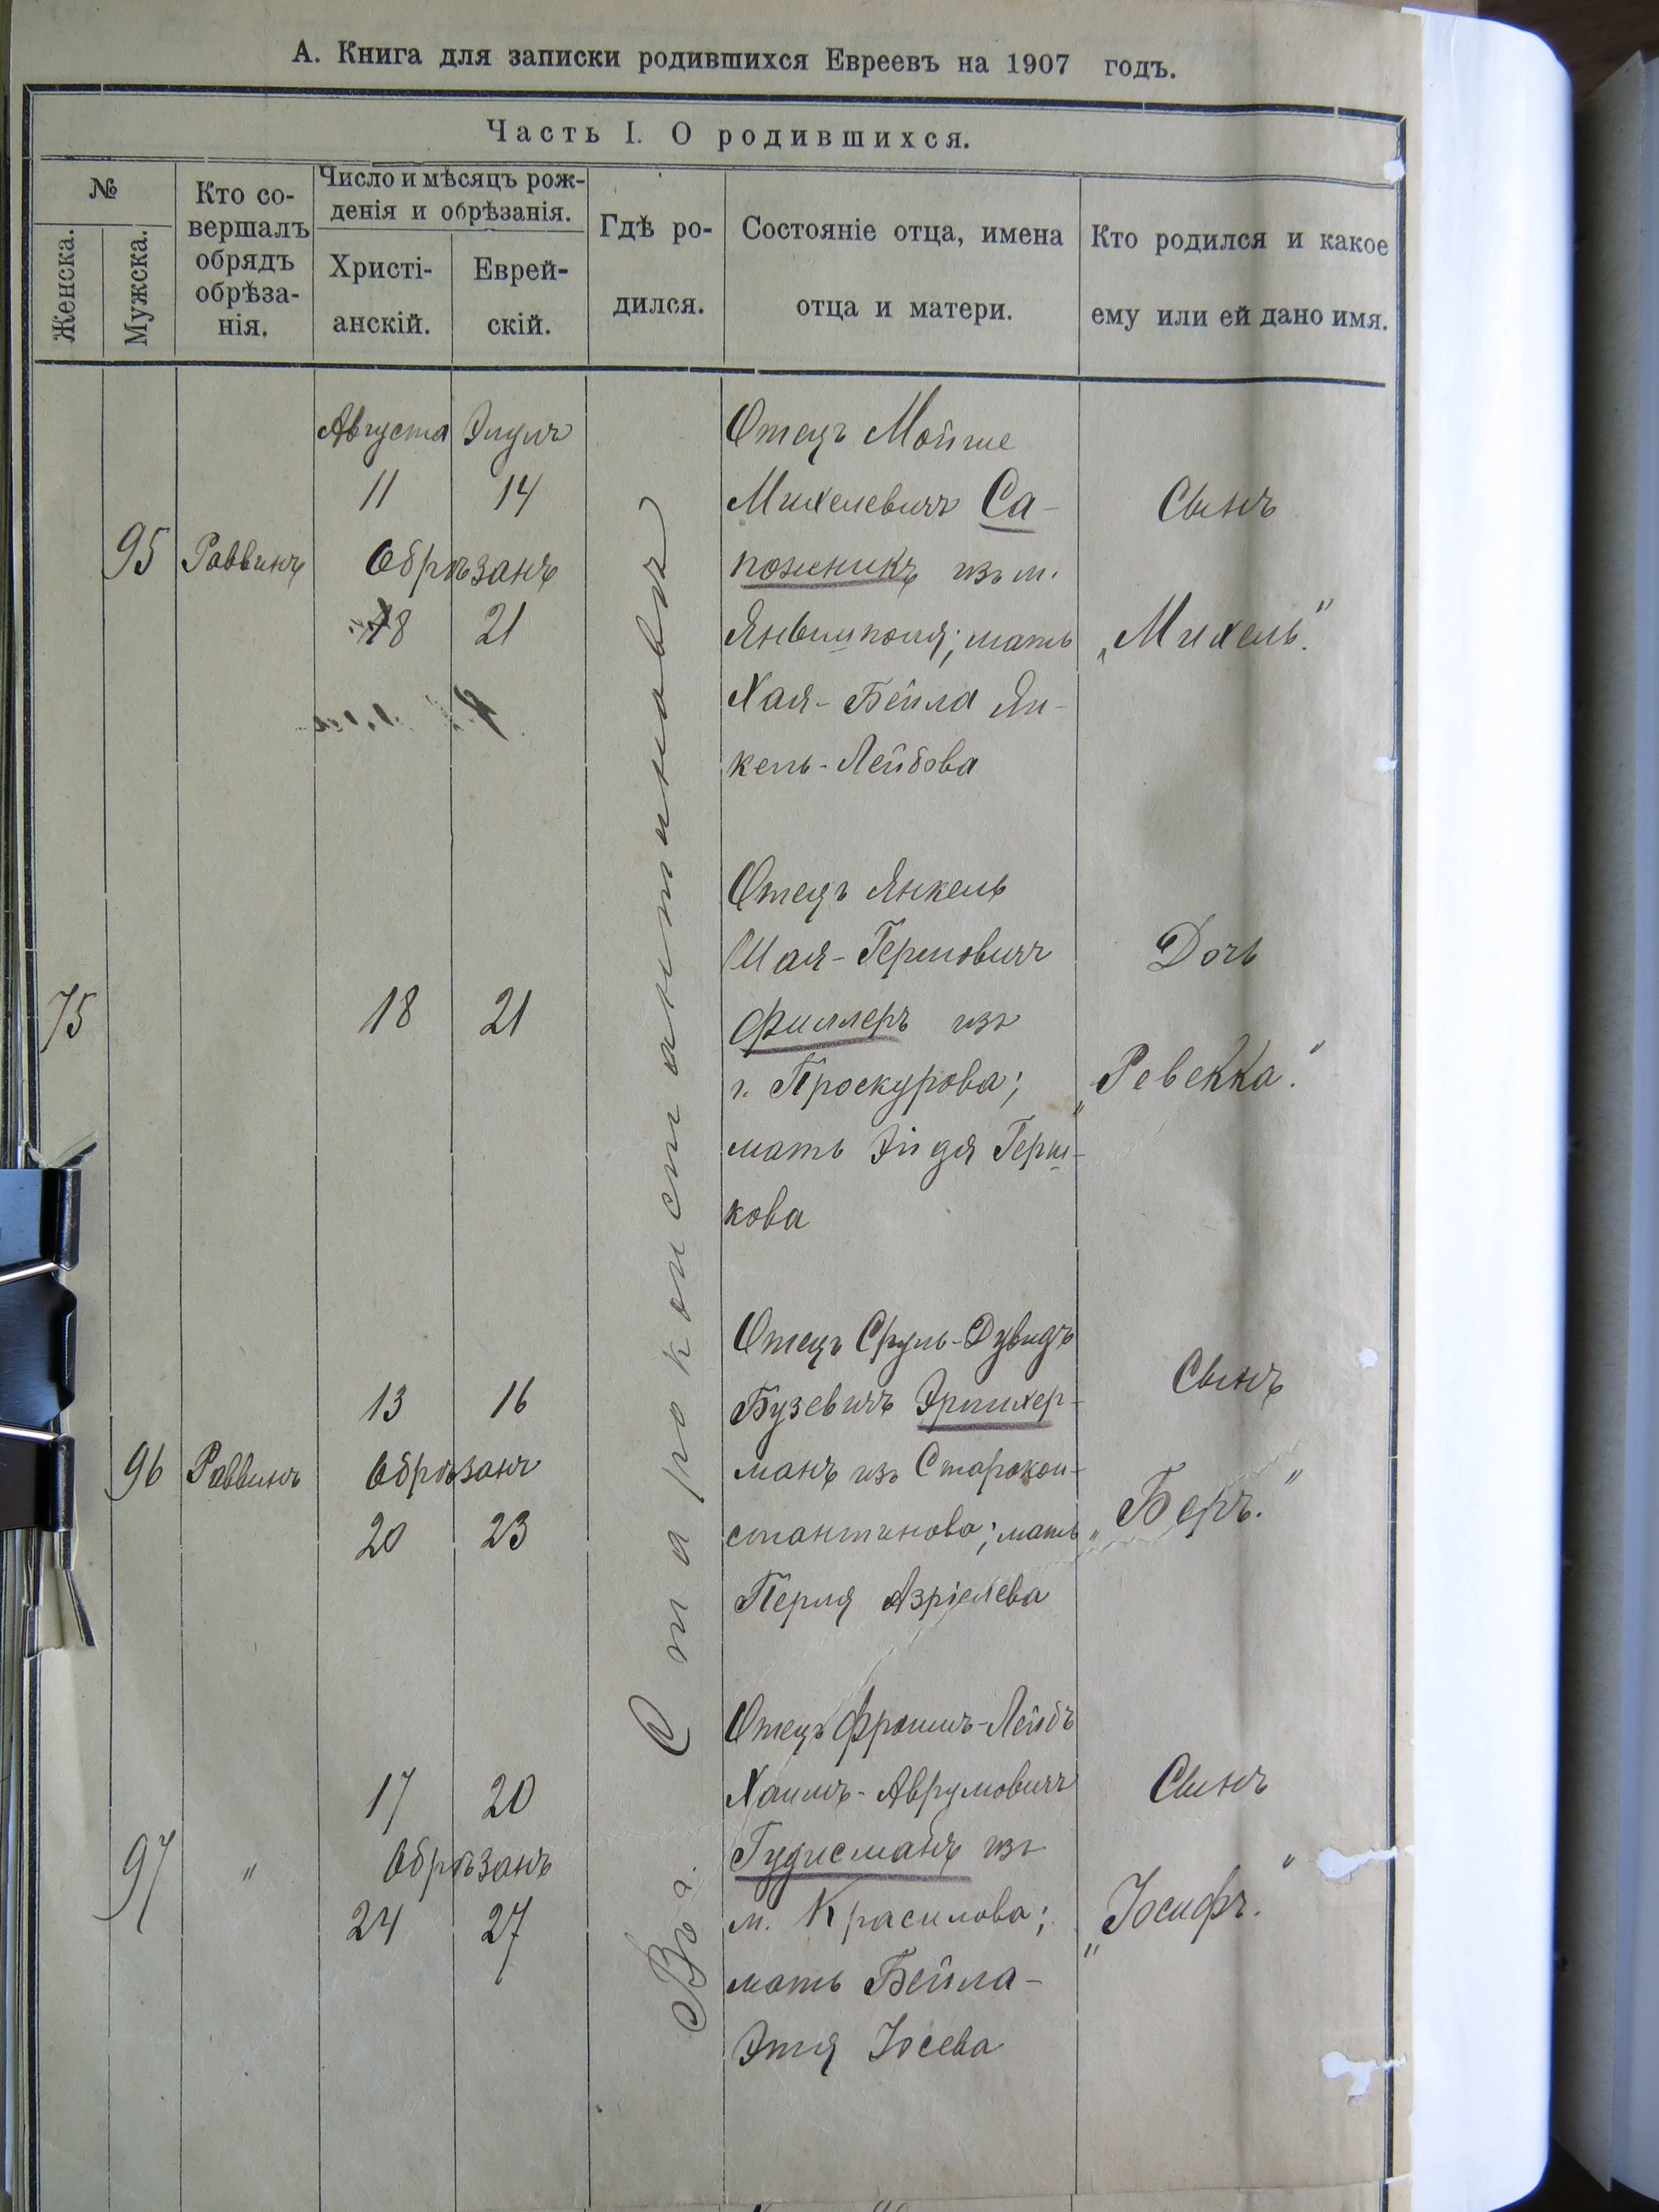 А. Книга для записки родившихся Евреевъ на 1907 годъ.
Часть I. О родившихся.
№
Женска.
Мужска.
Кто со-
вершалъ
обрядъ
обрѣза-
нія.
Число и мѣсяцъ рож-
денія и обрѣзанія.
Христі-
анскій.
Еврей-
скій.
Гдѣ ро-
дился.
Состояніе отца, имена
отца и матери.
Кто родился и какое
ему или ей дано имя.
Въ г. Староконстантиновѣ
95
Раввинъ
Августа Элулъ
11 14
Обрѣзанъ
18 21
Отецъ Мойше
Михелевичъ Са-
пожникъ изъ м.
Янвишполя; мать
Хая-Бейла Ян-
кель-Лейбова
Сынъ
„Михель."
75
18 21
Отецъ Янкель
Шая-Гершовичъ
Фишлеръ изъ
г. Проскурова;
мать Эйдя Герш-
кова
Дочь
„Ревекка."
96
Раввинъ
13 16
Обрѣзанъ
20 23
Отецъ Сруль-Дувидъ
Бузевичъ Эрлихер-
манъ изъ Старокон-
стантинова; мать
Перля Азріелева
Сынъ
„Беръ."
97
"
17 20
Обрѣзанъ
24 27
Отецъ Фроимъ-Лейбъ
Хаимъ-Аврумовичъ
Гудисманъ изъ
м. Красилова;
мать Бейла-
Этя Іосева
Сынъ
„Іосифъ."